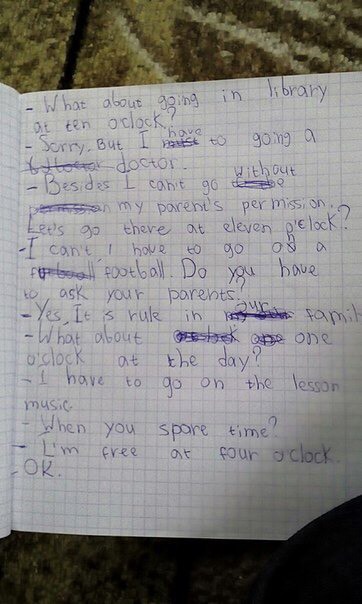 - What about going in library
at ten o'clock?
- Sorry. But I have to going a
doctor.
- Besides I can't go without
my parent's permission.
Let's go there at eleven o'clock?
- I can't I have to go on a
football. Do you have
to ask your parents?
- Yes, It is rule in our famil
- What about one
o'clock at the day?
- I have to go on the lesson
music.
- When you spare time?
- I'm free at four o'clock.
- OK.